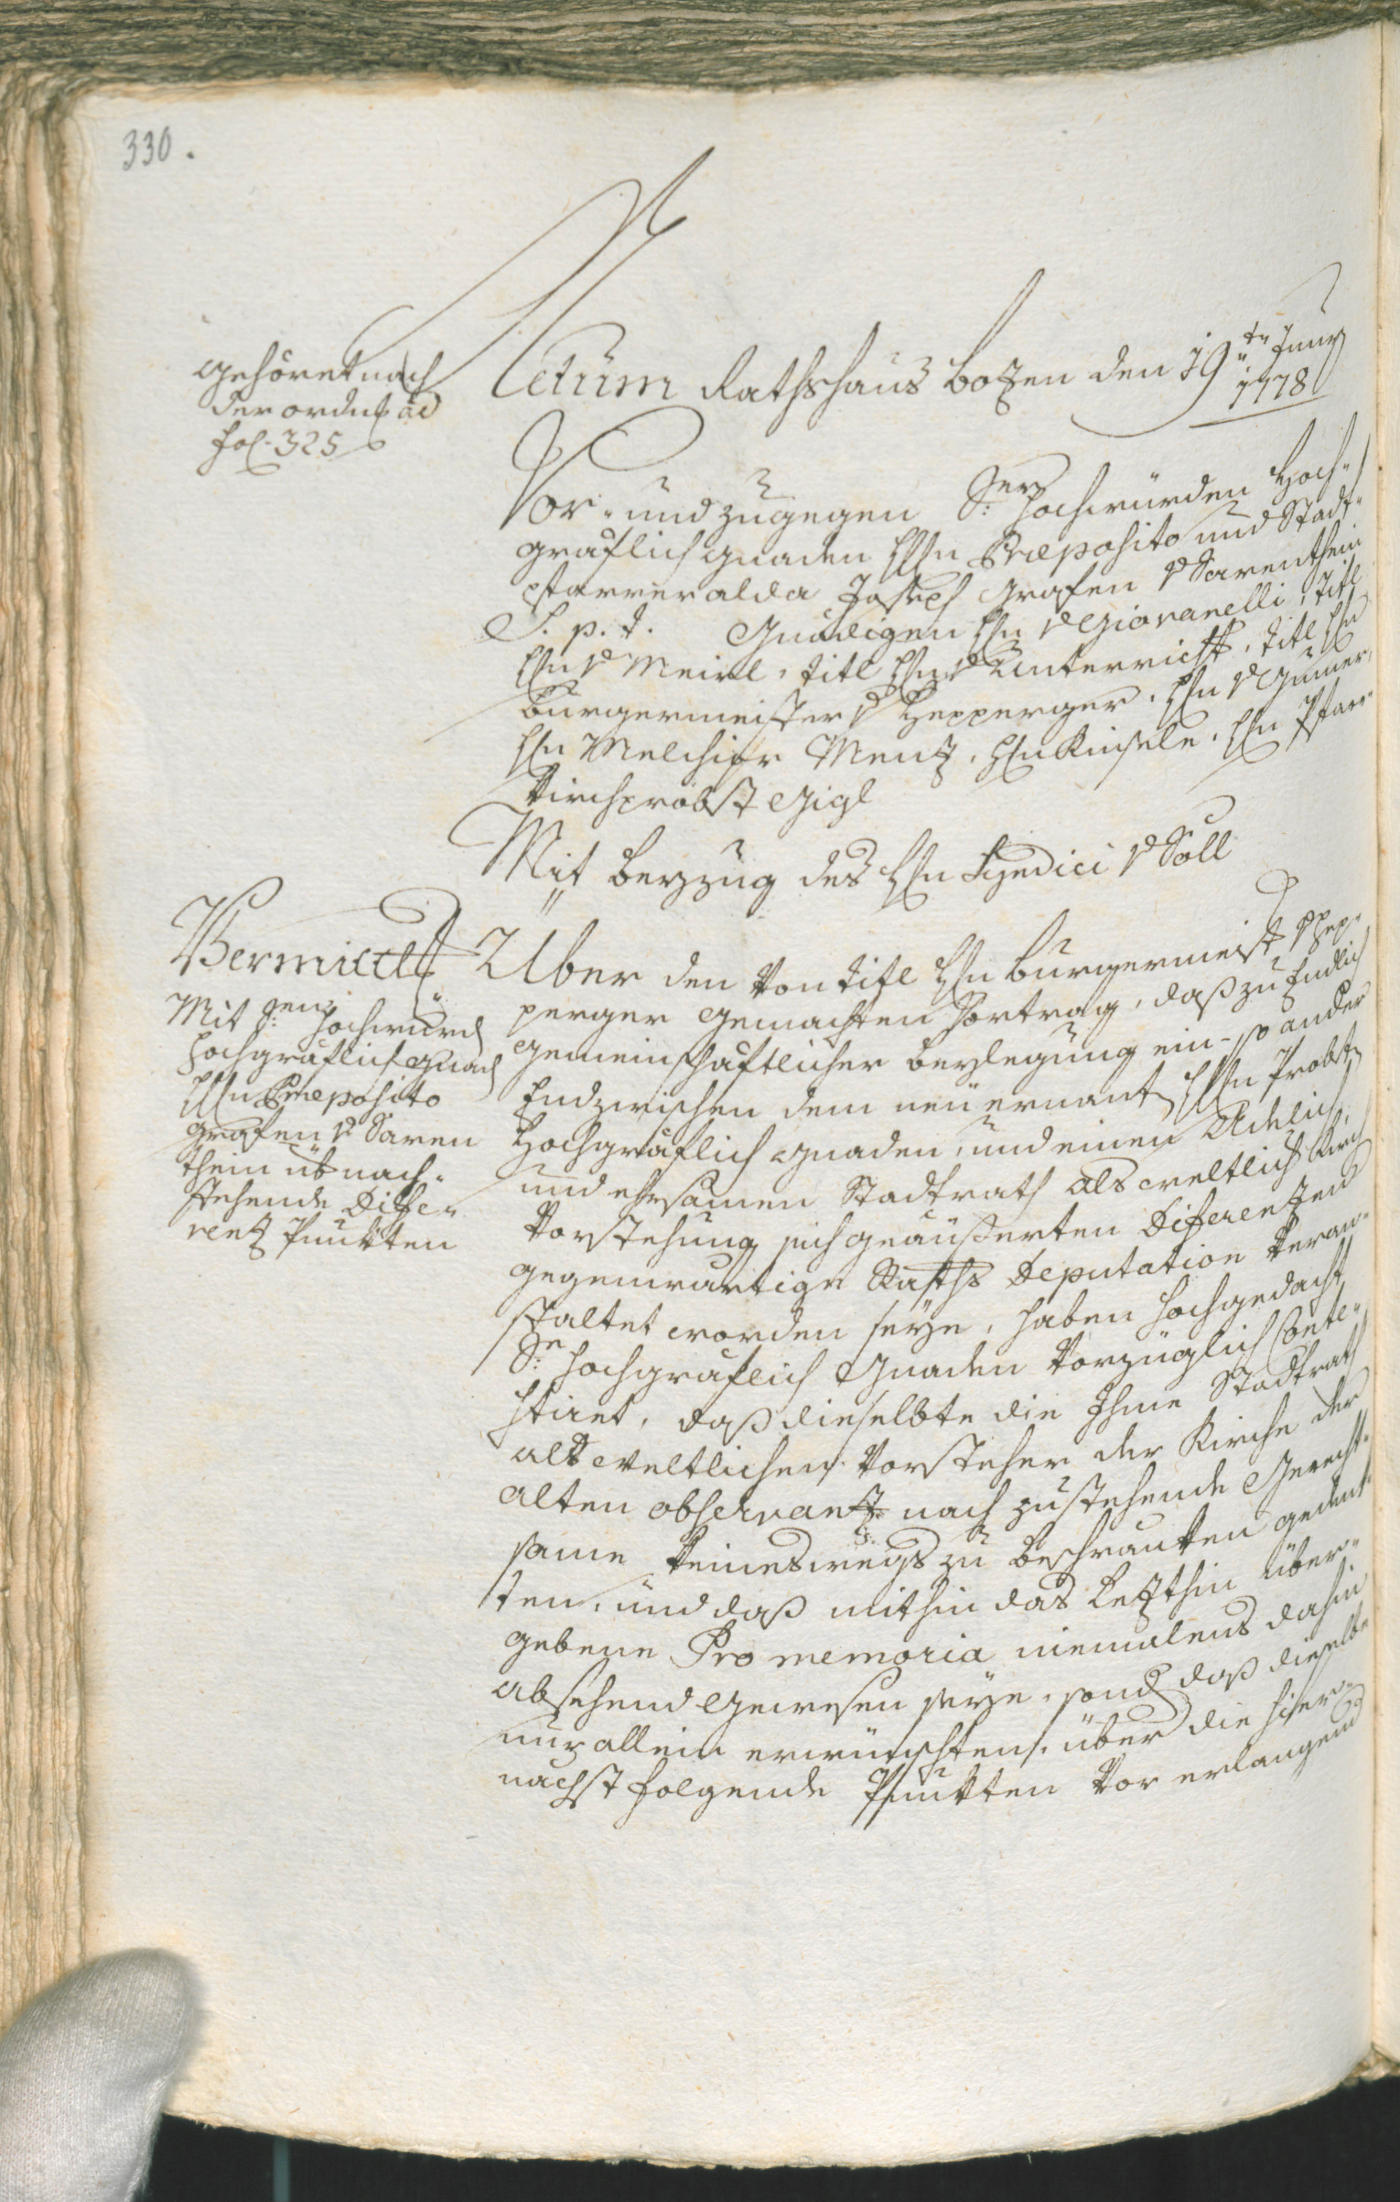 330.
gehöret nach
der ordnu͂g ad
fol. 325
Actum Rathshaus Botzen den 19ten Juny
1778
Vor- und zugegen Sr. Hochwürden Hoch-
gräflich Gnaden HHn Præposito und Stadt-
pfarrer alda Joseph Grafen v Sarenthein
S. p. t. Gnädigen Hn v Giovanelli, titl
Hn v Meirl, titl Hn v Unterricht, titl Hn
Burgermeister v Hepperger, Hn v Gumer,
Hn Melchior Menz, Hn Kinsele, Hn Pfarr-
kirchprobst Gigl
Mit Beyzug des Hn Syndici v Söll
Vermitlt
Mit Sr. Hochwürd
Hochgräflich Gnad
HHn Præposito
Grafen v Saren
thein üb nach-
stehende Diffe-
rentz Punkten
Über den von titl Hn Burgermeistr v Hep-
perger gemachten Vortrag, daß zu Endlich
gemeinschaftlicher Beylegung ein- so ander
Endzwischen dem neü ernant HHn Probst
Hochgräflich Gnaden, und einen Adelich
und ehrsamen Stadtrath als weltlich Kirch
Vorstehung sich geäußerten Differentzen
gegenwärtige Raths Deputation veran-
staltet worden seye, haben hochgedacht
Sr. Hochgräflich Gnaden vorzüglich Conte-
stiret, daß dieselbte die Ihme Stadtrath
als weltlichen Vorsteher der Kirche der
alten observantz nach zustehende Gerecht-
same keineswegs zu beschränkten gedenk-
ten, und daß mithin das letzthin über-
gebene Pro memoria niemalens dahin
absehend gewesen seye, sond daß dieselbe
nur allein erwünschten, über die hier-
nächst folgende Punkten vor erlangend